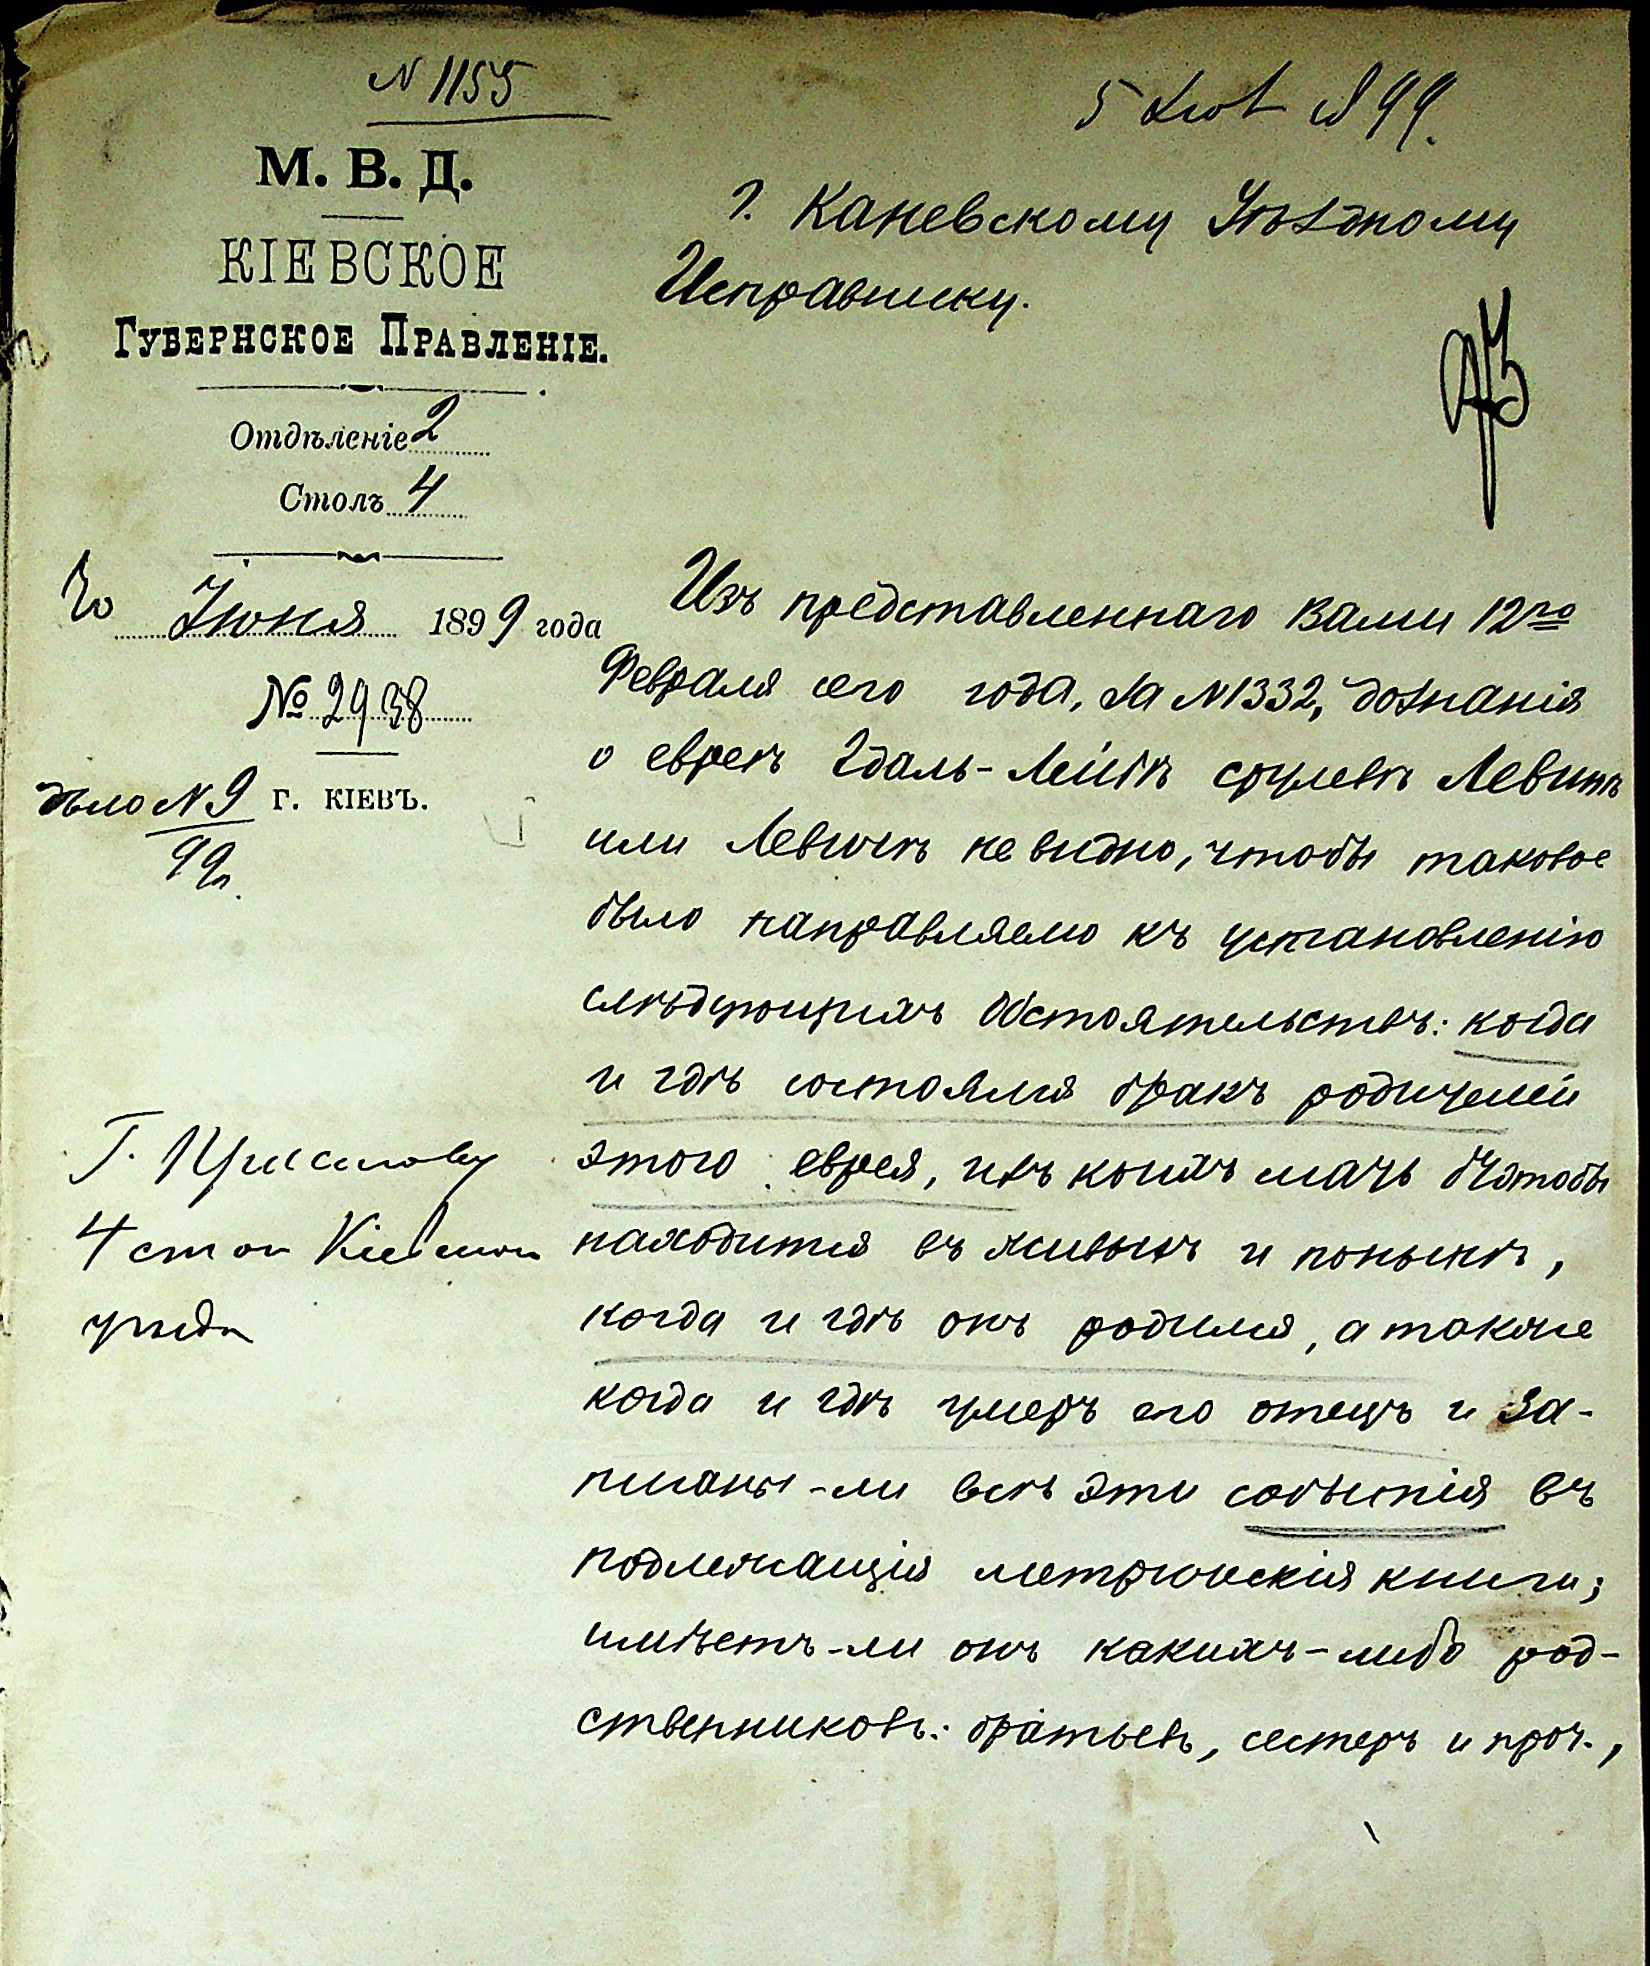 N 1155
М. В. Д.
КІЕВСКОЕ
ГУБЕРНСКОЕ ПРАВЛЕНІЕ.
Отдѣленіе 2
Столъ 4
Іюня 1899 года
№ 2938
г. КІЕВЪ.
дѣло N 9
99 г.
Г. Приставу
4 стан
уѣзда
5 1899.
Г. Каневскому Уѣздному
Исправнику.
Изъ представленнаго Вами 12го
Февраля сего года, за N 1332, дознанія
о евреѣ Гдаль-Лейбѣ Срулевѣ Левитѣ
или Левичѣ не видно, чтобы таковое
было направляемо къ установленію
слѣдующихъ обстоятельствъ: когда
и гдѣ состоялся бракъ родителей
этого еврея, изъ коихъ мать бы
находится въ живыхъ и понынѣ,
когда и гдѣ онъ родился, а также
когда и гдѣ умеръ его отецъ и за-
писаны-ли всѣ эти событія въ
подлежащія метрическія книги;
имѣетъ-ли онъ какихъ-либо род-
ственниковъ: братьевъ, сестеръ и проч.,